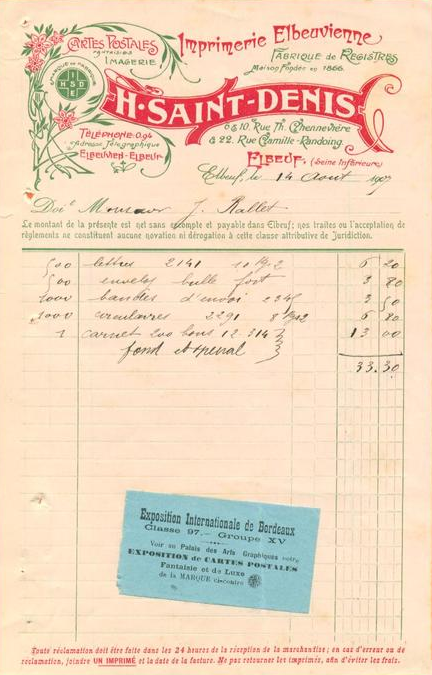 Cartes Postales
Fantaisies
Imagerie
Imprimerie Elbeuvienne
Fabrique de Registres
Maison Fondée en 1866.
MARQUE DE FABRIQUE
I H S D E
H. SAINT-DENIS
8 & 10, Rue Th. Chennevière
& 22, Rue Camille-Randoing
ELBEUF, (Seine Inférieure)
TÉLÉPHONE 0.94
Adresse Télégraphique
ELBEUVIEN-ELBEUF
Elbeuf, le 14 Août 190
Doit Monsieur J. Rallet
Le montant de la présente est net sans escompte et payable dans Elbeuf; nos traites ou l'acceptation de
règlements ne constituent aucune novation ni dérogation à cette clause attributive de Juridiction.
500 lettres 2141 6 20
500 envelop bulle fort 3 80
1000 bandes d'envoi 3 50
1000 circulaires 2291 6 80
1 carnet 200 bons 12 314 13 00
fond
33.30
Exposition Internationale de Bordeaux
Classe 97. - Groupe XV
Voir au Palais des Arts Graphiques notre
EXPOSITION de CARTES POSTALES
Fantaisie et de Luxe
de la MARQUE ci-contre
Toute réclamation doit être faite dans les 24 heures de la réception de la marchandise; en cas d'erreur ou de
réclamation, joindre UN IMPRIMÉ et la date de la facture. Ne pas retourner les imprimés, afin d'éviter les frais.